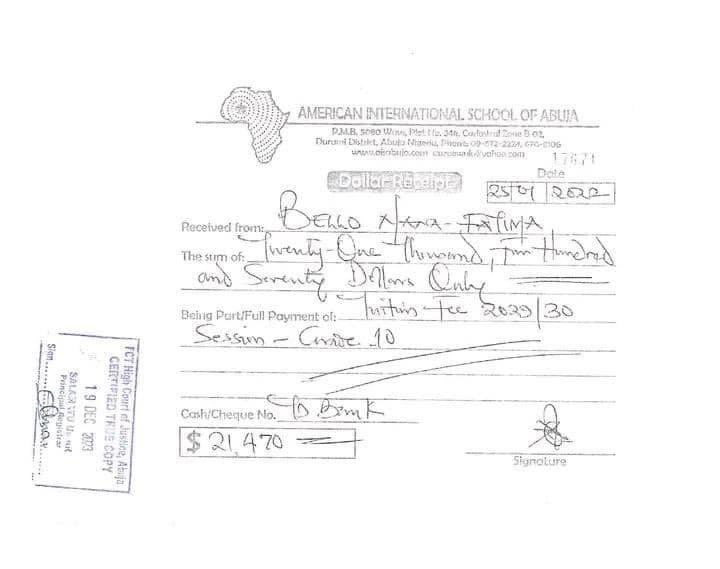 AMERICAN INTERNATIONAL SCHOOL OF ABUJA
P.M.B. 5080 Wuse, Plot No. 346, Cadastral Zone B 02,
Durumi District, Abuja Nigeria, Phone: 09-672-2224,
www.aisabuja.com
17671
Dollar Receipt
Date
25 01 2022
Received from: BELLO FATIMA
The sum of: Twenty-One Thousand, Four Hundred
and Seventy Dollars Only
Being Part/Full Payment of: Tuition Fee 2029/30
Session - Grade 10
Cash/Cheque No. Bank
$ 21,470
Signature
FCT High Court of Justice, Abuja
CERTIFIED TRUE COPY
19 DEC 2023
Principal Registrar
Sign